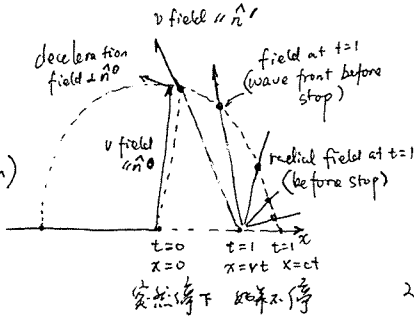 v field // n̂'
deceleration
field ⊥ n̂⁰
field at t=1
(wave front before
stop)
v field
// n̂⁰
radial field at t=1
(before stop)
n)
x
t=0 t=1 t=1
x=0 x=vt x=ct
突然停下 如并不停
2